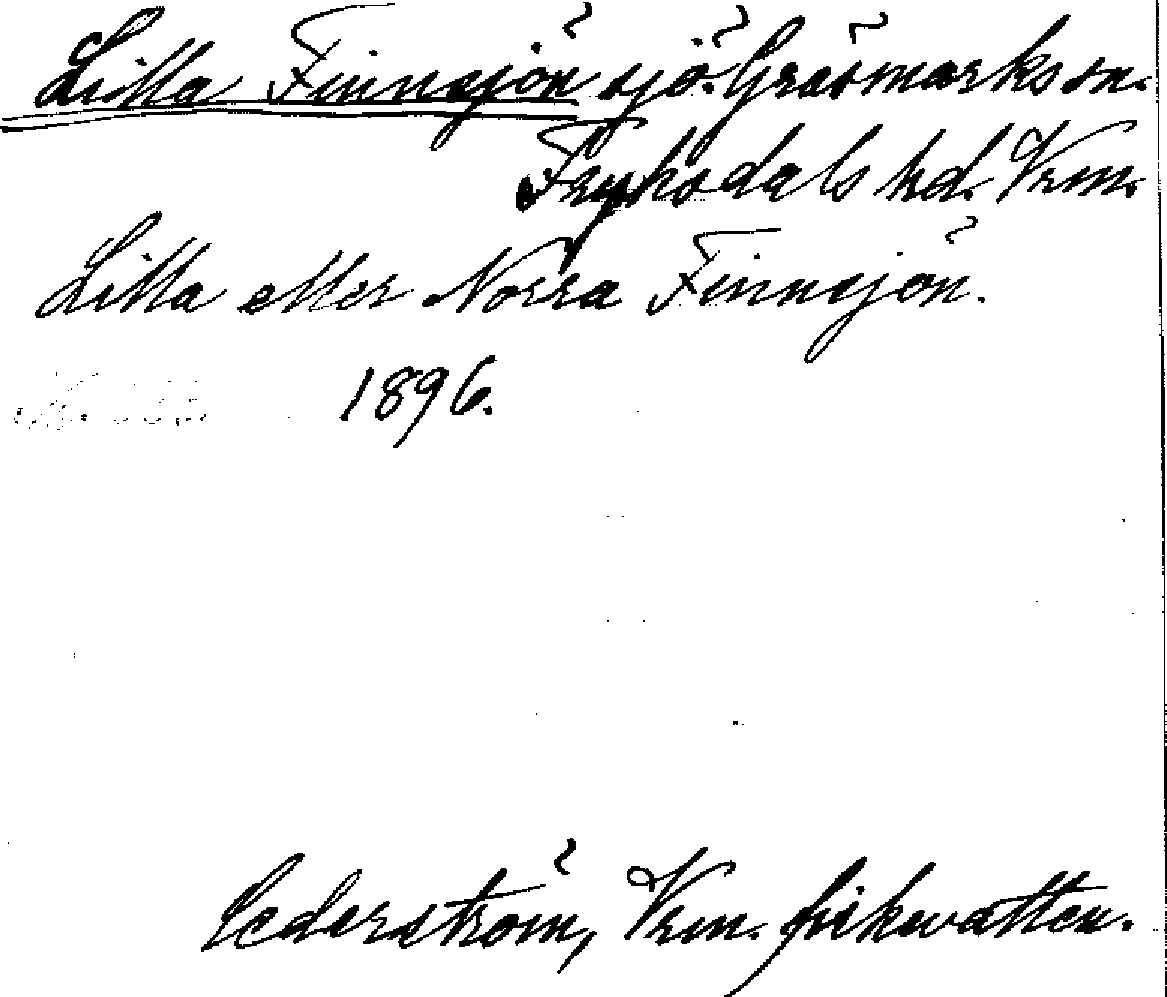 Lilla Finnsjön sjö. Gräsmarks sn.
Fryksdals hd. Vrm.
Lilla eller Norra Finnsjön.
1896.
Cederström, Vrm. fiskevatten.